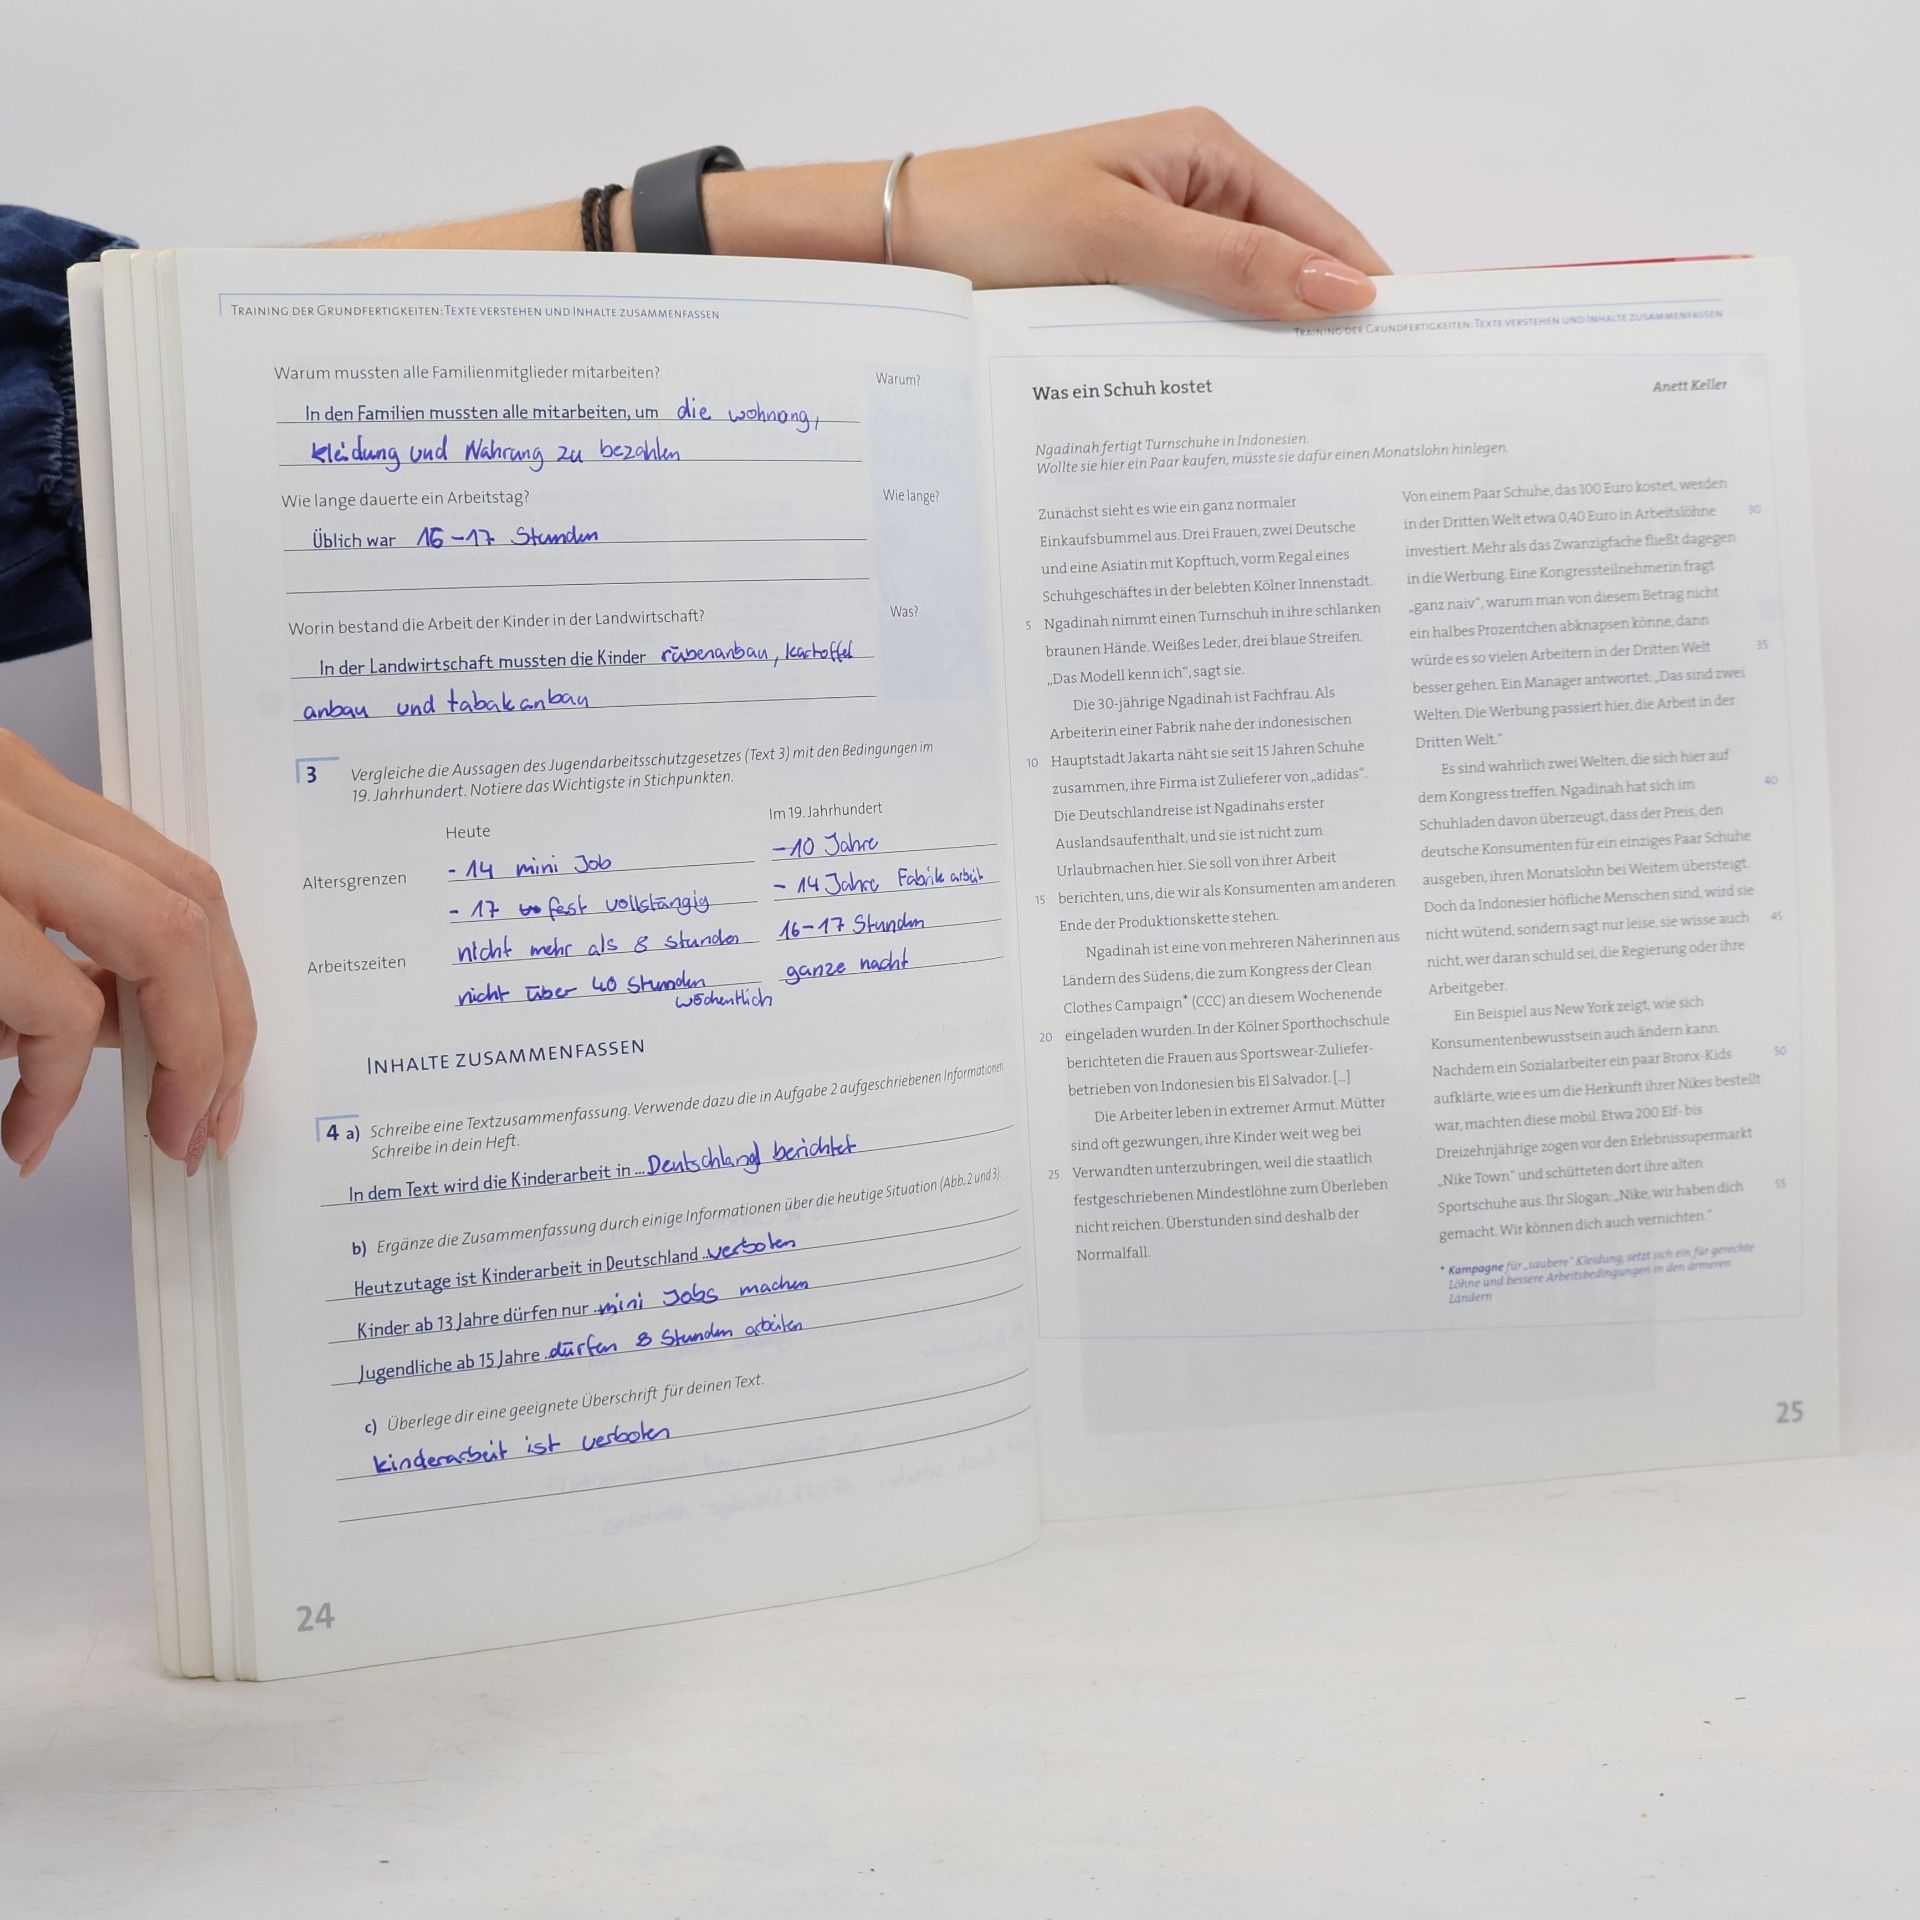 TRAINING DER GRUNDFERTIGKEITEN: TEXTE VERSTEHEN UND INHALTE ZUSAMMENFASSEN
Warum mussten alle Familienmitglieder mitarbeiten?
Warum?
In den Familien mussten alle mitarbeiten, um die wohnong,
kleidung und Nahrung zu bezahlen
Wie lange dauerte ein Arbeitstag?
Wie lange?
Üblich war 16-17 Stunden
Worin bestand die Arbeit der Kinder in der Landwirtschaft?
Was?
In der Landwirtschaft mussten die Kinder rübenanbau, kartoffel
anbau und tabakanbau
3 Vergleiche die Aussagen des Jugendarbeitsschutzgesetzes (Text 3) mit den Bedingungen im
19. Jahrhundert. Notiere das Wichtigste in Stichpunkten.
Heute
Im 19. Jahrhundert
Altersgrenzen
- 14 mini Job
- 10 Jahre
- 17 fest vollstängig
- 14 Jahre Fabrik arbeit
Arbeitszeiten
nicht mehr als 8 stunden
16-17 Stunden
nicht über 40 Stunden
wöchentlich
ganze nacht
INHALTE ZUSAMMENFASSEN
4 a) Schreibe eine Textzusammenfassung. Verwende dazu die in Aufgabe 2 aufgeschriebenen Informationen.
Schreibe in dein Heft.
In dem Text wird die Kinderarbeit in ... Deutschland berichtet
b) Ergänze die Zusammenfassung durch einige Informationen über die heutige Situation (Abb. 2 und 3).
Heutzutage ist Kinderarbeit in Deutschland ... verboten
Kinder ab 13 Jahre dürfen nur ... mini Jobs machen
Jugendliche ab 15 Jahre ... dürfen 8 Stunden arbeiten
c) Überlege dir eine geeignete Überschrift für deinen Text.
kinderarbeit ist verboten
24
TRAINING DER GRUNDFERTIGKEITEN: TEXTE VERSTEHEN UND INHALTE ZUSAMMENFASSEN
Was ein Schuh kostet
Anett Keller
Ngadinah fertigt Turnschuhe in Indonesien.
Wollte sie hier ein Paar kaufen, müsste sie dafür einen Monatslohn hinlegen.
Zunächst sieht es wie ein ganz normaler
Einkaufsbummel aus. Drei Frauen, zwei Deutsche
und eine Asiatin mit Kopftuch, vorm Regal eines
Schuhgeschäftes in der belebten Kölner Innenstadt.
5 Ngadinah nimmt einen Turnschuh in ihre schlanken
braunen Hände. Weißes Leder, drei blaue Streifen.
„Das Modell kenn ich“, sagt sie.
Die 30-jährige Ngadinah ist Fachfrau. Als
Arbeiterin einer Fabrik nahe der indonesischen
10 Hauptstadt Jakarta näht sie seit 15 Jahren Schuhe
zusammen, ihre Firma ist Zulieferer von „adidas“.
Die Deutschlandreise ist Ngadinahs erster
Auslandsaufenthalt, und sie ist nicht zum
Urlaubmachen hier. Sie soll von ihrer Arbeit
15 berichten, uns, die wir als Konsumenten am anderen
Ende der Produktionskette stehen.
Ngadinah ist eine von mehreren Näherinnen aus
Ländern des Südens, die zum Kongress der Clean
Clothes Campaign* (CCC) an diesem Wochenende
20 eingeladen wurden. In der Kölner Sporthochschule
berichteten die Frauen aus Sportswear-Zuliefer-
betrieben von Indonesien bis El Salvador. [...]
Die Arbeiter leben in extremer Armut. Mütter
sind oft gezwungen, ihre Kinder weit weg bei
25 Verwandten unterzubringen, weil die staatlich
festgeschriebenen Mindestlöhne zum Überleben
nicht reichen. Überstunden sind deshalb der
Normalfall.
Von einem Paar Schuhe, das 100 Euro kostet, werden
in der Dritten Welt etwa 0,40 Euro in Arbeitslöhne 30
investiert. Mehr als das Zwanzigfache fließt dagegen
in die Werbung. Eine Kongressteilnehmerin fragt
„ganz naiv“, warum man von diesem Betrag nicht
ein halbes Prozentchen abknapsen könne, dann
würde es so vielen Arbeitern in der Dritten Welt 35
besser gehen. Ein Manager antwortet: „Das sind zwei
Welten. Die Werbung passiert hier, die Arbeit in der
Dritten Welt.“
Es sind wahrlich zwei Welten, die sich hier auf
dem Kongress treffen. Ngadinah hat sich im 40
Schuhladen davon überzeugt, dass der Preis, den
deutsche Konsumenten für ein einziges Paar Schuhe
ausgeben, ihren Monatslohn bei Weitem übersteigt.
Doch da Indonesier höfliche Menschen sind, wird sie
nicht wütend, sondern sagt nur leise, sie wisse auch 45
nicht, wer daran schuld sei, die Regierung oder ihre
Arbeitgeber.
Ein Beispiel aus New York zeigt, wie sich
Konsumentenbewusstsein auch ändern kann.
Nachdem ein Sozialarbeiter ein paar Bronx-Kids 50
aufklärte, wie es um die Herkunft ihrer Nikes bestellt
war, machten diese mobil. Etwa 200 Elf- bis
Dreizehnjährige zogen vor den Erlebnissupermarkt
„Nike Town“ und schütteten dort ihre alten
Sportschuhe aus. Ihr Slogan: „Nike, wir haben dich 55
gemacht. Wir können dich auch vernichten.“
* Kampagne für „saubere“ Kleidung, setzt sich ein für gerechte
Löhne und bessere Arbeitsbedingungen in den ärmeren
Ländern
25